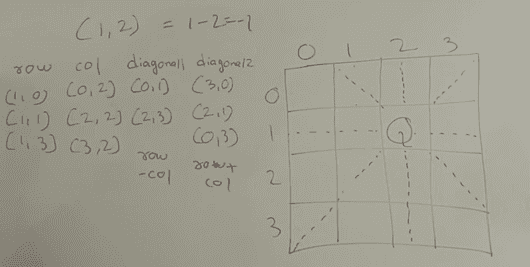 (1,2) = 1-2=-1
row col diagonal1 diagonal2
(1,0) (0,2) (0,1) (3,0)
(1,1) (2,2) (2,3) (2,1)
(1,3) (3,2) (0,3)
row row+
-col col
0 1 2 3
0
1 Q
2
3